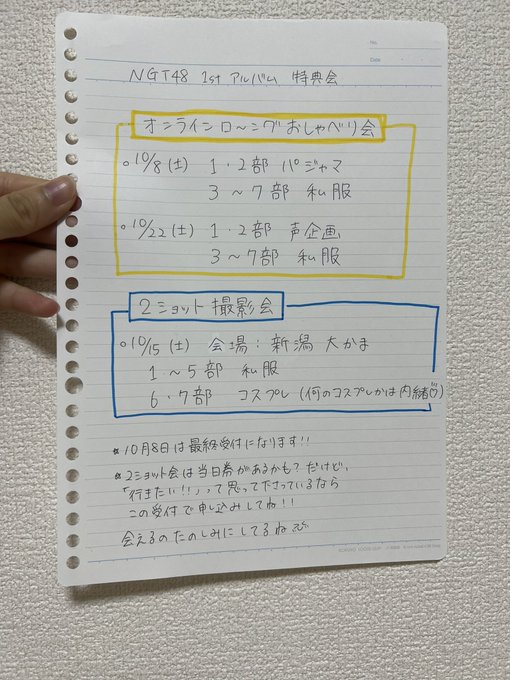 No.
Date
NGT48 1st アルバム 特典会
オンラインロ〜ングおしゃべり会
○10/8(土) 1・2部 パジャマ
3〜7部 私服
○10/22(土) 1・2部 声企画
3〜7部 私服
2ショット撮影会
○10/15(土) 会場:新潟 大かま
1〜5部 私服
6・7部 コスプレ (何のコスプレかは内緒♡)
※10月8日は最終受付になります!!
※2ショット会は当日券があるかも?だけど、
「行きたい!!」って思って下さっているなら
この受付で申し込みしてね!!
会えるのたのしみにしてるね